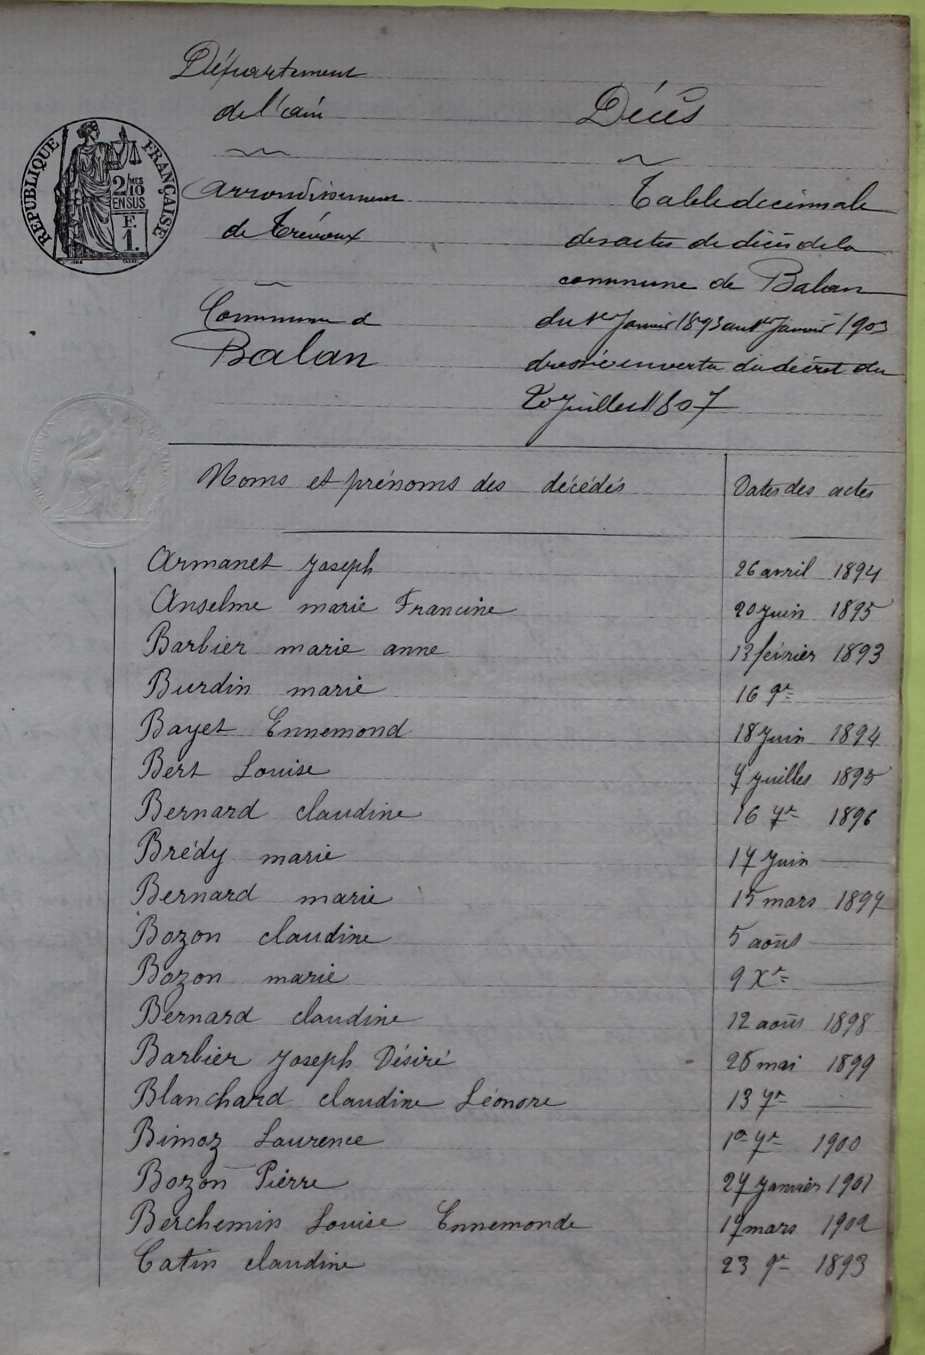 Département
de l'ain
Arrondissement
de Trévoux
Commune d
Balan
RÉPUBLIQUE FRANÇAISE
2/10
EN SUS
F.
1.
Décès
Table décennale
des actes de décès de la
commune de Balan
du 1er Janvier 1893 au 1er Janvier 1903
dressée en vertu du décret du
20 Juillet 1807
Noms et prénoms des décédés Dates des actes
Armanet Joseph 26 avril 1894
Anselme marie Francine 20 Juin 1895
Barbier marie anne 13 février 1893
Burdin marie 16 9re
Bayet Ennemond 18 Juin 1894
Bert Louise 7 Juillet 1895
Bernard claudine 16 7re 1896
Brédy marie 17 Juin
Bernard marie 15 mars 1897
Bozon claudine 5 août
Bozon marie 9 Xre
Bernard claudine 12 août 1898
Barbier Joseph Désiré 28 mai 1899
Blanchard claudine Léonore 13 7re
Bimoz Laurence 1er 7re 1900
Bozon Pierre 27 Janvier 1901
Berchemin Louise Ennemonde 17 mars 1902
Catin claudine 23 9re 1893